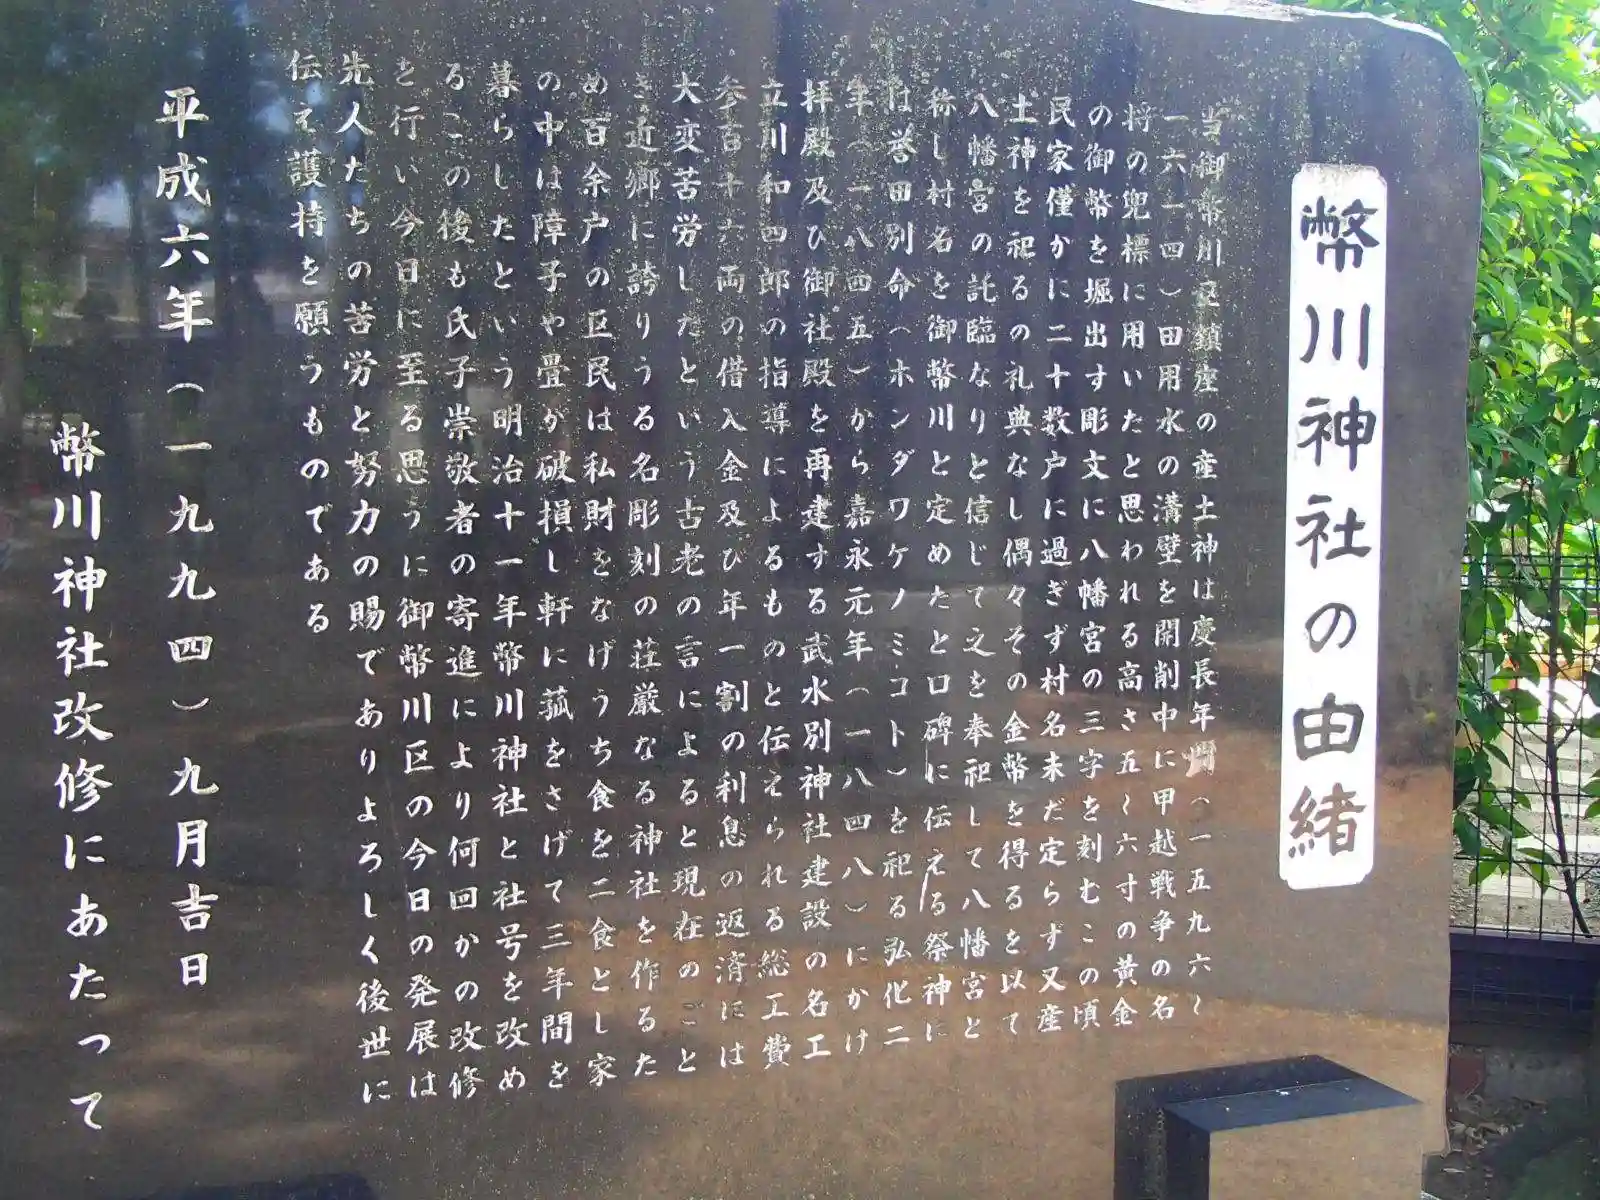 幣川神社の由緒
当御幣川区鎮座の産土神は慶長年間(一五九六~
一六一四)田用水の溝壁を開削中に甲越戦争の名
将の兜標に用いたと思われる高さ五~六寸の黄金
の御幣を堀出す彫文に八幡宮の三字を刻むこの頃
民家僅かに二十数戸に過ぎず村名未だ定らず又産
土神を祀るの礼典なし偶々その金幣を得るを以て
八幡宮の託臨なりと信じて之を奉祀して八幡宮と
称し村名を御幣川と定めたと口碑に伝える祭神に
は誉田別命(ホンダワケノミコト)を祀る弘化二
年(一八四五)から嘉永元年(一八四八)にかけ
拝殿及ひ御社殿を再建する武水別神社建設の名工
立川和四郎の指導によるものと伝えられる総工費
参百十六両の借入金及び年一割の利息の返済には
大変苦労したという古老の言によると現在のごと
き近郷に誇りうる名彫刻の荘厳なる神社を作るた
め百余戸の区民は私財をなげうち食を二食とし家
の中は障子や畳が破損し軒に菰をさげて三年間を
暮らしたという明治十一年幣川神社と社号を改め
るこの後も氏子崇敬者の寄進により何回かの改修
を行い今日に至る思うに御幣川区の今日の発展は
先人たちの苦労と努力の賜でありよろしく後世に
伝えて護持を願うものである
平成六年(一九九四)九月吉日
幣川神社改修にあたって